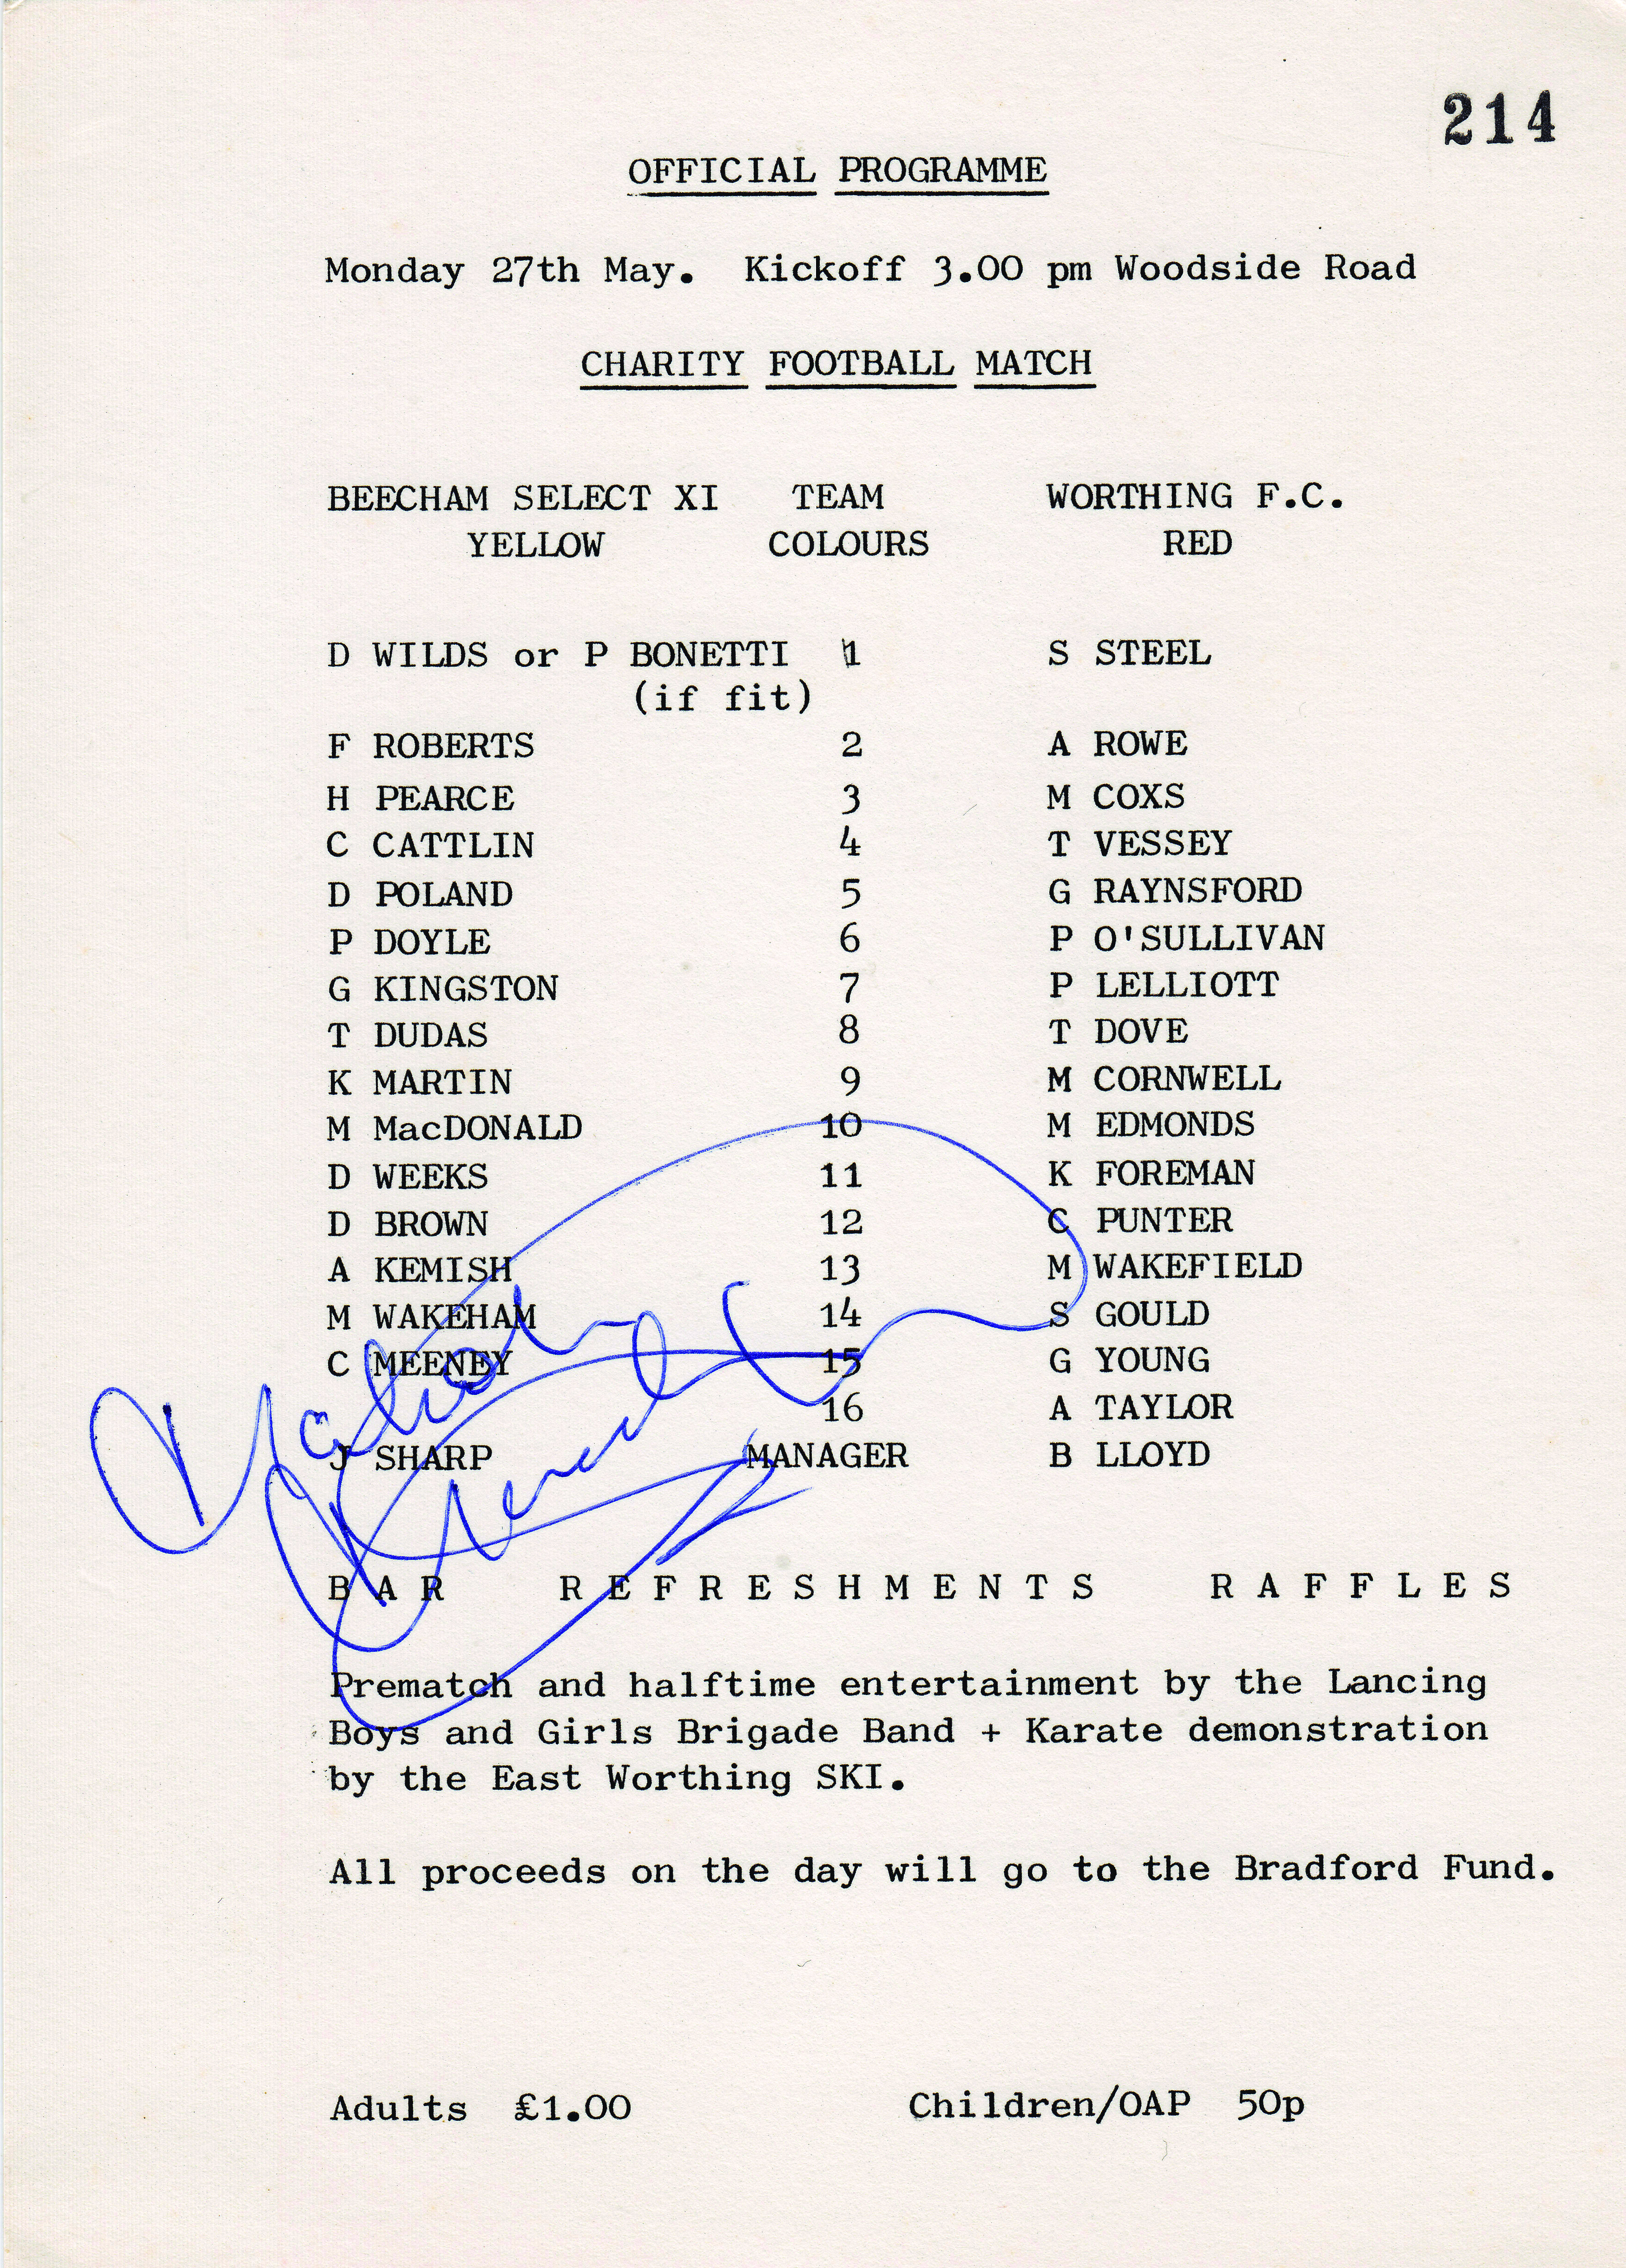 214
OFFICIAL PROGRAMME
Monday 27th May. Kickoff 3.00 pm Woodside Road
CHARITY FOOTBALL MATCH
BEECHAM SELECT XI TEAM WORTHING F.C.
YELLOW COLOURS RED
D WILDS or P BONETTI 1 S STEEL
(if fit)
F ROBERTS 2 A ROWE
H PEARCE 3 M COXS
C CATTLIN 4 T VESSEY
D POLAND 5 G RAYNSFORD
P DOYLE 6 P O'SULLIVAN
G KINGSTON 7 P LELLIOTT
T DUDAS 8 T DOVE
K MARTIN 9 M CORNWELL
M MacDONALD 10 M EDMONDS
D WEEKS 11 K FOREMAN
D BROWN 12 C PUNTER
A KEMISH 13 M WAKEFIELD
M WAKEHAM 14 S GOULD
C MEENEY 15 G YOUNG
16 A TAYLOR
J SHARP MANAGER B LLOYD
BAR REFRESHMENTS RAFFLES
Prematch and halftime entertainment by the Lancing
Boys and Girls Brigade Band + Karate demonstration
by the East Worthing SKI.
All proceeds on the day will go to the Bradford Fund.
Adults £1.00 Children/OAP 50p